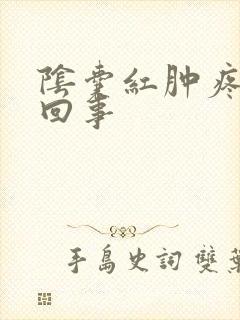 陰囊紅肿疼
回事
手島史詞 雙葉